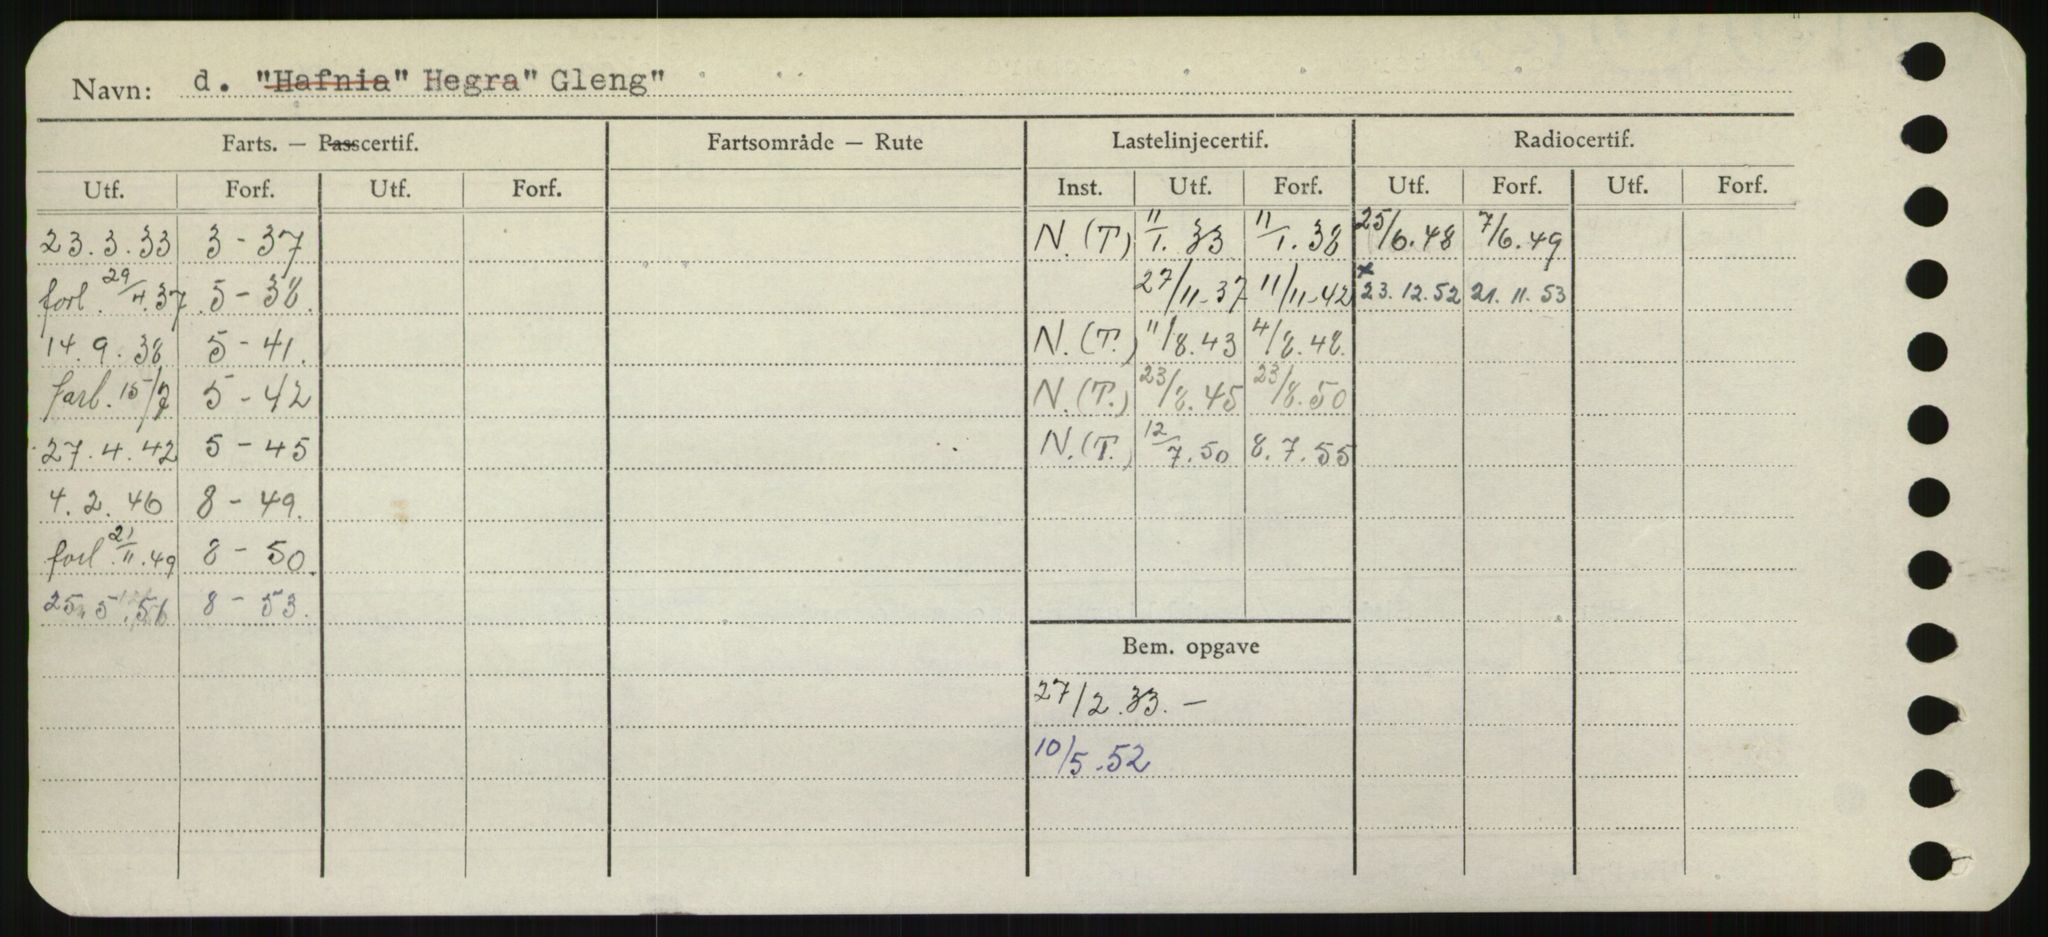 Navn: d. "Hafnia" Hegra" Gleng"
Farts. — Passcertif. Fartsområde — Rute Lastelinjecertif. Radiocertif.
Utf. Forf. Utf. Forf. Inst. Utf. Forf. Utf. Forf. Utf. Forf.
23.3.33 3 - 37 N. (T) 11/1. 33 11/1. 38 25/6.48 7/6.49
forl. 29/4.37 5 - 38. 27/11-37 11/11-42 x 23.12.52 21.11.53
14.9.38 5 - 41. N. (T.) 11/8.43 4/8.48.
forl. 15/7 5 - 42 N. (T.) 23/8.45 23/8.50
27.4.42 5 - 45 N. (T.) 12/7.50 8.7.55
4.2.46 8 - 49.
forl. 21/11.49 8 - 50.
25.5. 8 - 53.
Bem. opgave
27/2.33. —
10/5.52